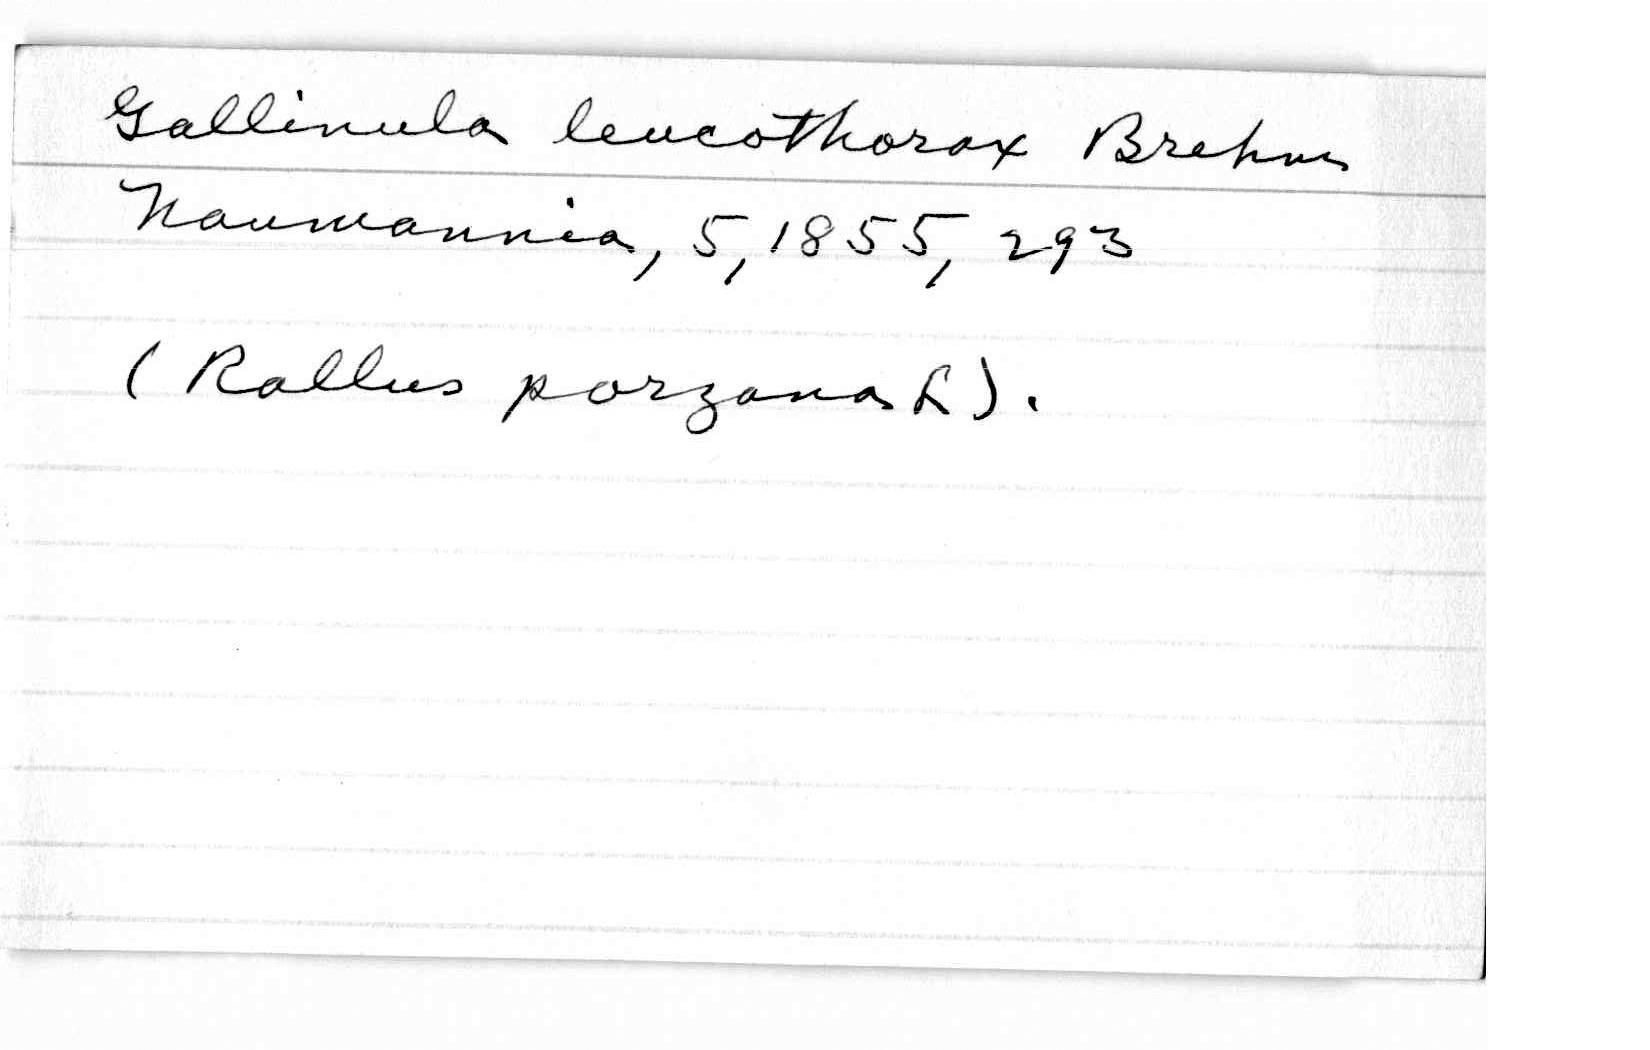 Gallinula leucothorax Brehm
Naumannia, 5, 1855, 293
(Rallus porzana L).